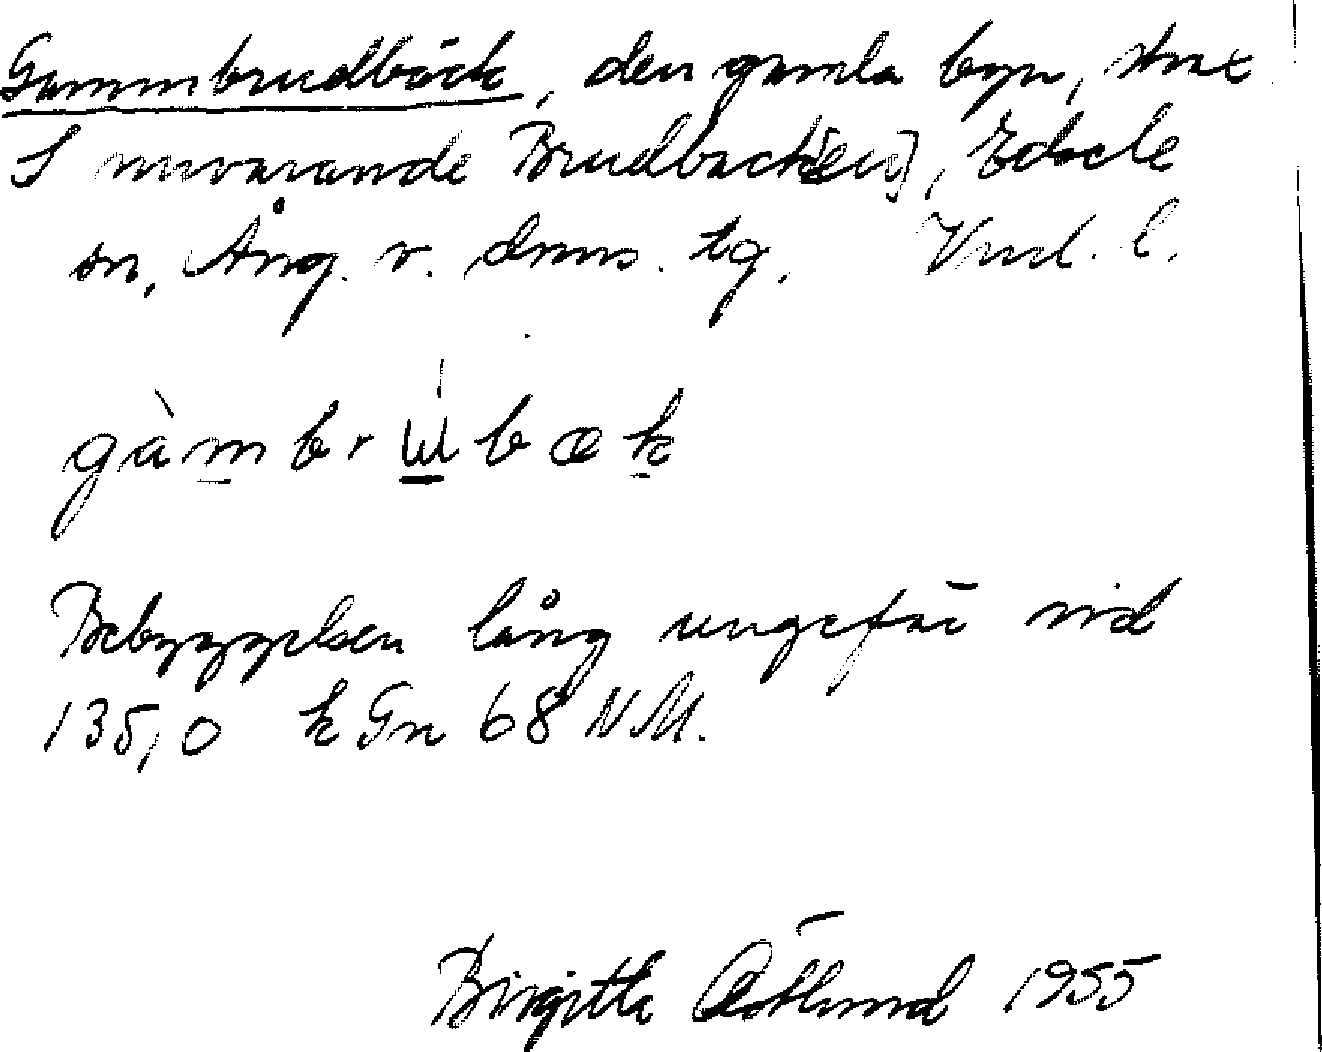 Gammbrudböck, den gamla byn, strax
S nuvarande Brudbäck[en], Edsele
sn, Ång. v. dms. tg. Und. l.
gàmbrẉbœk
Bebyggelsen låg ungefär vid
135,0 k Gn 68 NM.
Birgitta Östlund 1955